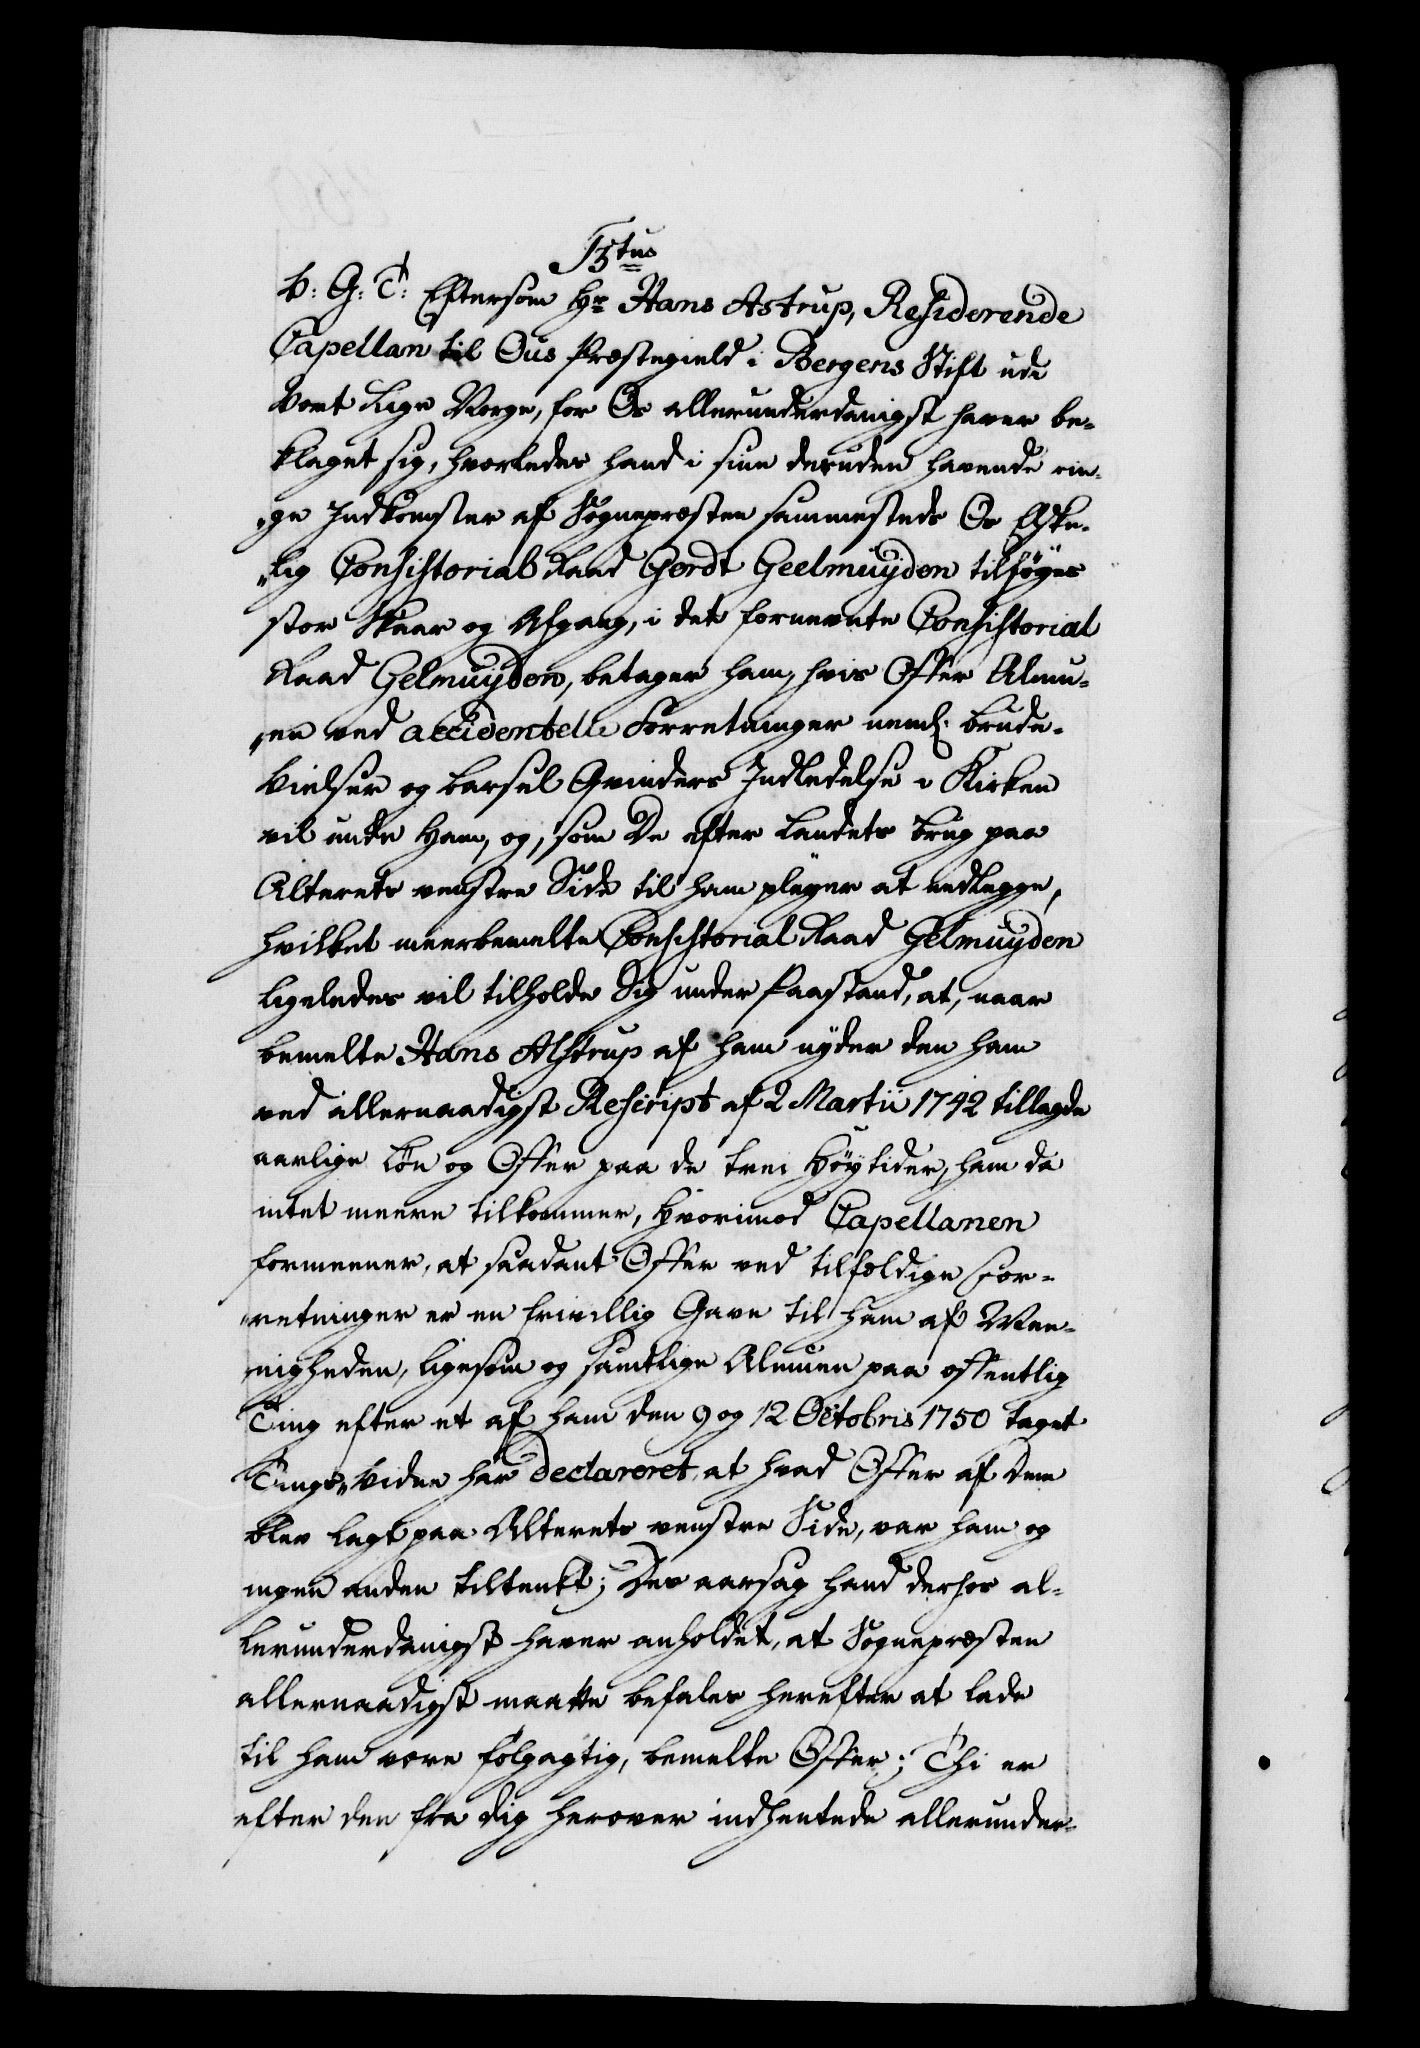 F5tus
V: G: T: Eftersom Hr Hans Astrup, Residerende
Capellan til Ous Præstegield i Bergens Stift udi
Vort Rige Norge, for Os allerunderdanigst haver be-
klaget sig, hvorledes hand i sine desuden havende rin-
ge Indkomster af Sognepræsten sammesteds Os Elske-
lig Consistorial Raad Gerdt Geelmuyden tilføyes
stor Skaar og Afgang, i det fornevnte Consistorial
Raad Gelmuyden, betager ham, hvis Offer Almu-
en ved accidentelle Forretninger neml. brude-
Vielser og barsel Qvinders Indledelse i Kirken
vil unde Ham, og, som De efter Landets brug paa
Alterets venstre Side til ham pleyer at nedlegge,
hvilket meerbemelte Consistorial Raad Gelmuyden
ligeledes vil tilholde Sig under Paastand, at, naar
bemelte Hans Alstrup af ham nyder den ham
ved allernaadigst Rescript af 2 Martii 1742 tillagde
aarlige Løn og Offer paa de trei Høytider, ham da
intet meere tilkommer, Hvorimod Capellanen
formeener, at saadant Offer ved tilfældige For-
retninger er en frivillig Gave til ham af Mee-
nigheden, ligesom og samtlige Almuen paa offentlig
Ting efter et af ham den 9 og 12 Octobris 1750 taget
Tings-Vidne har declareret, at hvad Offer af dem
blev lagt paa Alterets venstre Side, var ham og
ingen anden tiltenkt; Des aarsag hand derhos al-
lerunderdanigst haver anholdet, at Sognepræsten
allernaadigst maatte befales herefter at lade
til ham være følgagtig, bemelte Offer; Thi er
efter den fra dig herover indhentede allerunder-